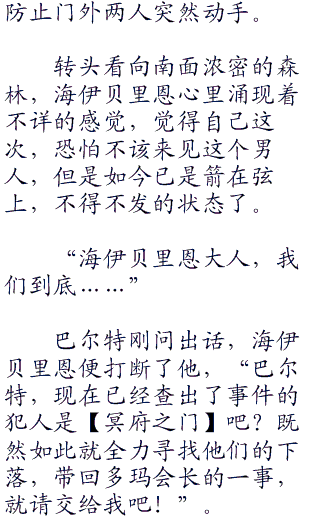 防止门外两人突然动手。
转头看向南面浓密的森
林，海伊贝里恩心里涌现着
不详的感觉，觉得自己这
次，恐怕不该来见这个男
人，但是如今已是箭在弦
上，不得不发的状态了。
“海伊贝里恩大人，我
们到底……”
巴尔特刚问出话，海伊
贝里恩便打断了他，“巴尔
特，现在已经查出了事件的
犯人是【冥府之门】吧？既
然如此就全力寻找他们的下
落，带回多玛会长的一事，
就请交给我吧！”。